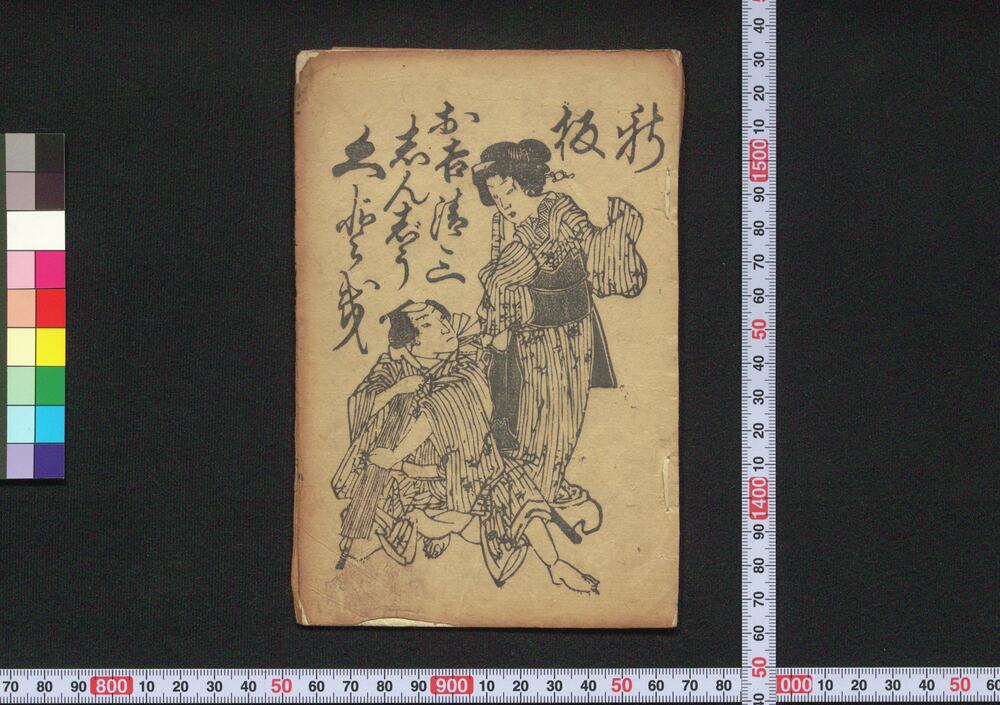 新
板
お吉清三
しんじう
くどき
70 80 90 800 10 20 30 40 50 60 70 80 90 900 10 20 30 40 50 60 70 80
000 10 20 30 40 50 60
40 30 20 10 1500 90 80 70 60 50 40 30 20 10 1400 90 80 70 60 50 40